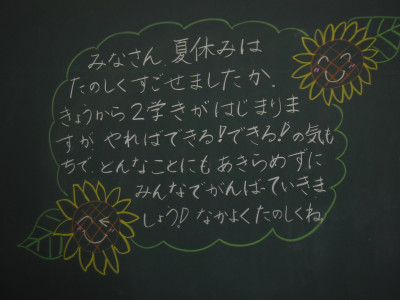 みなさん、夏休みは
たのしくすごせましたか。
きょうから2学きがはじまりま
すが、やればできる!できる!の気も
ちで、どんなことにもあきらめずに
みんなでがんばっていきま
しょう!なかよくたのしくね。